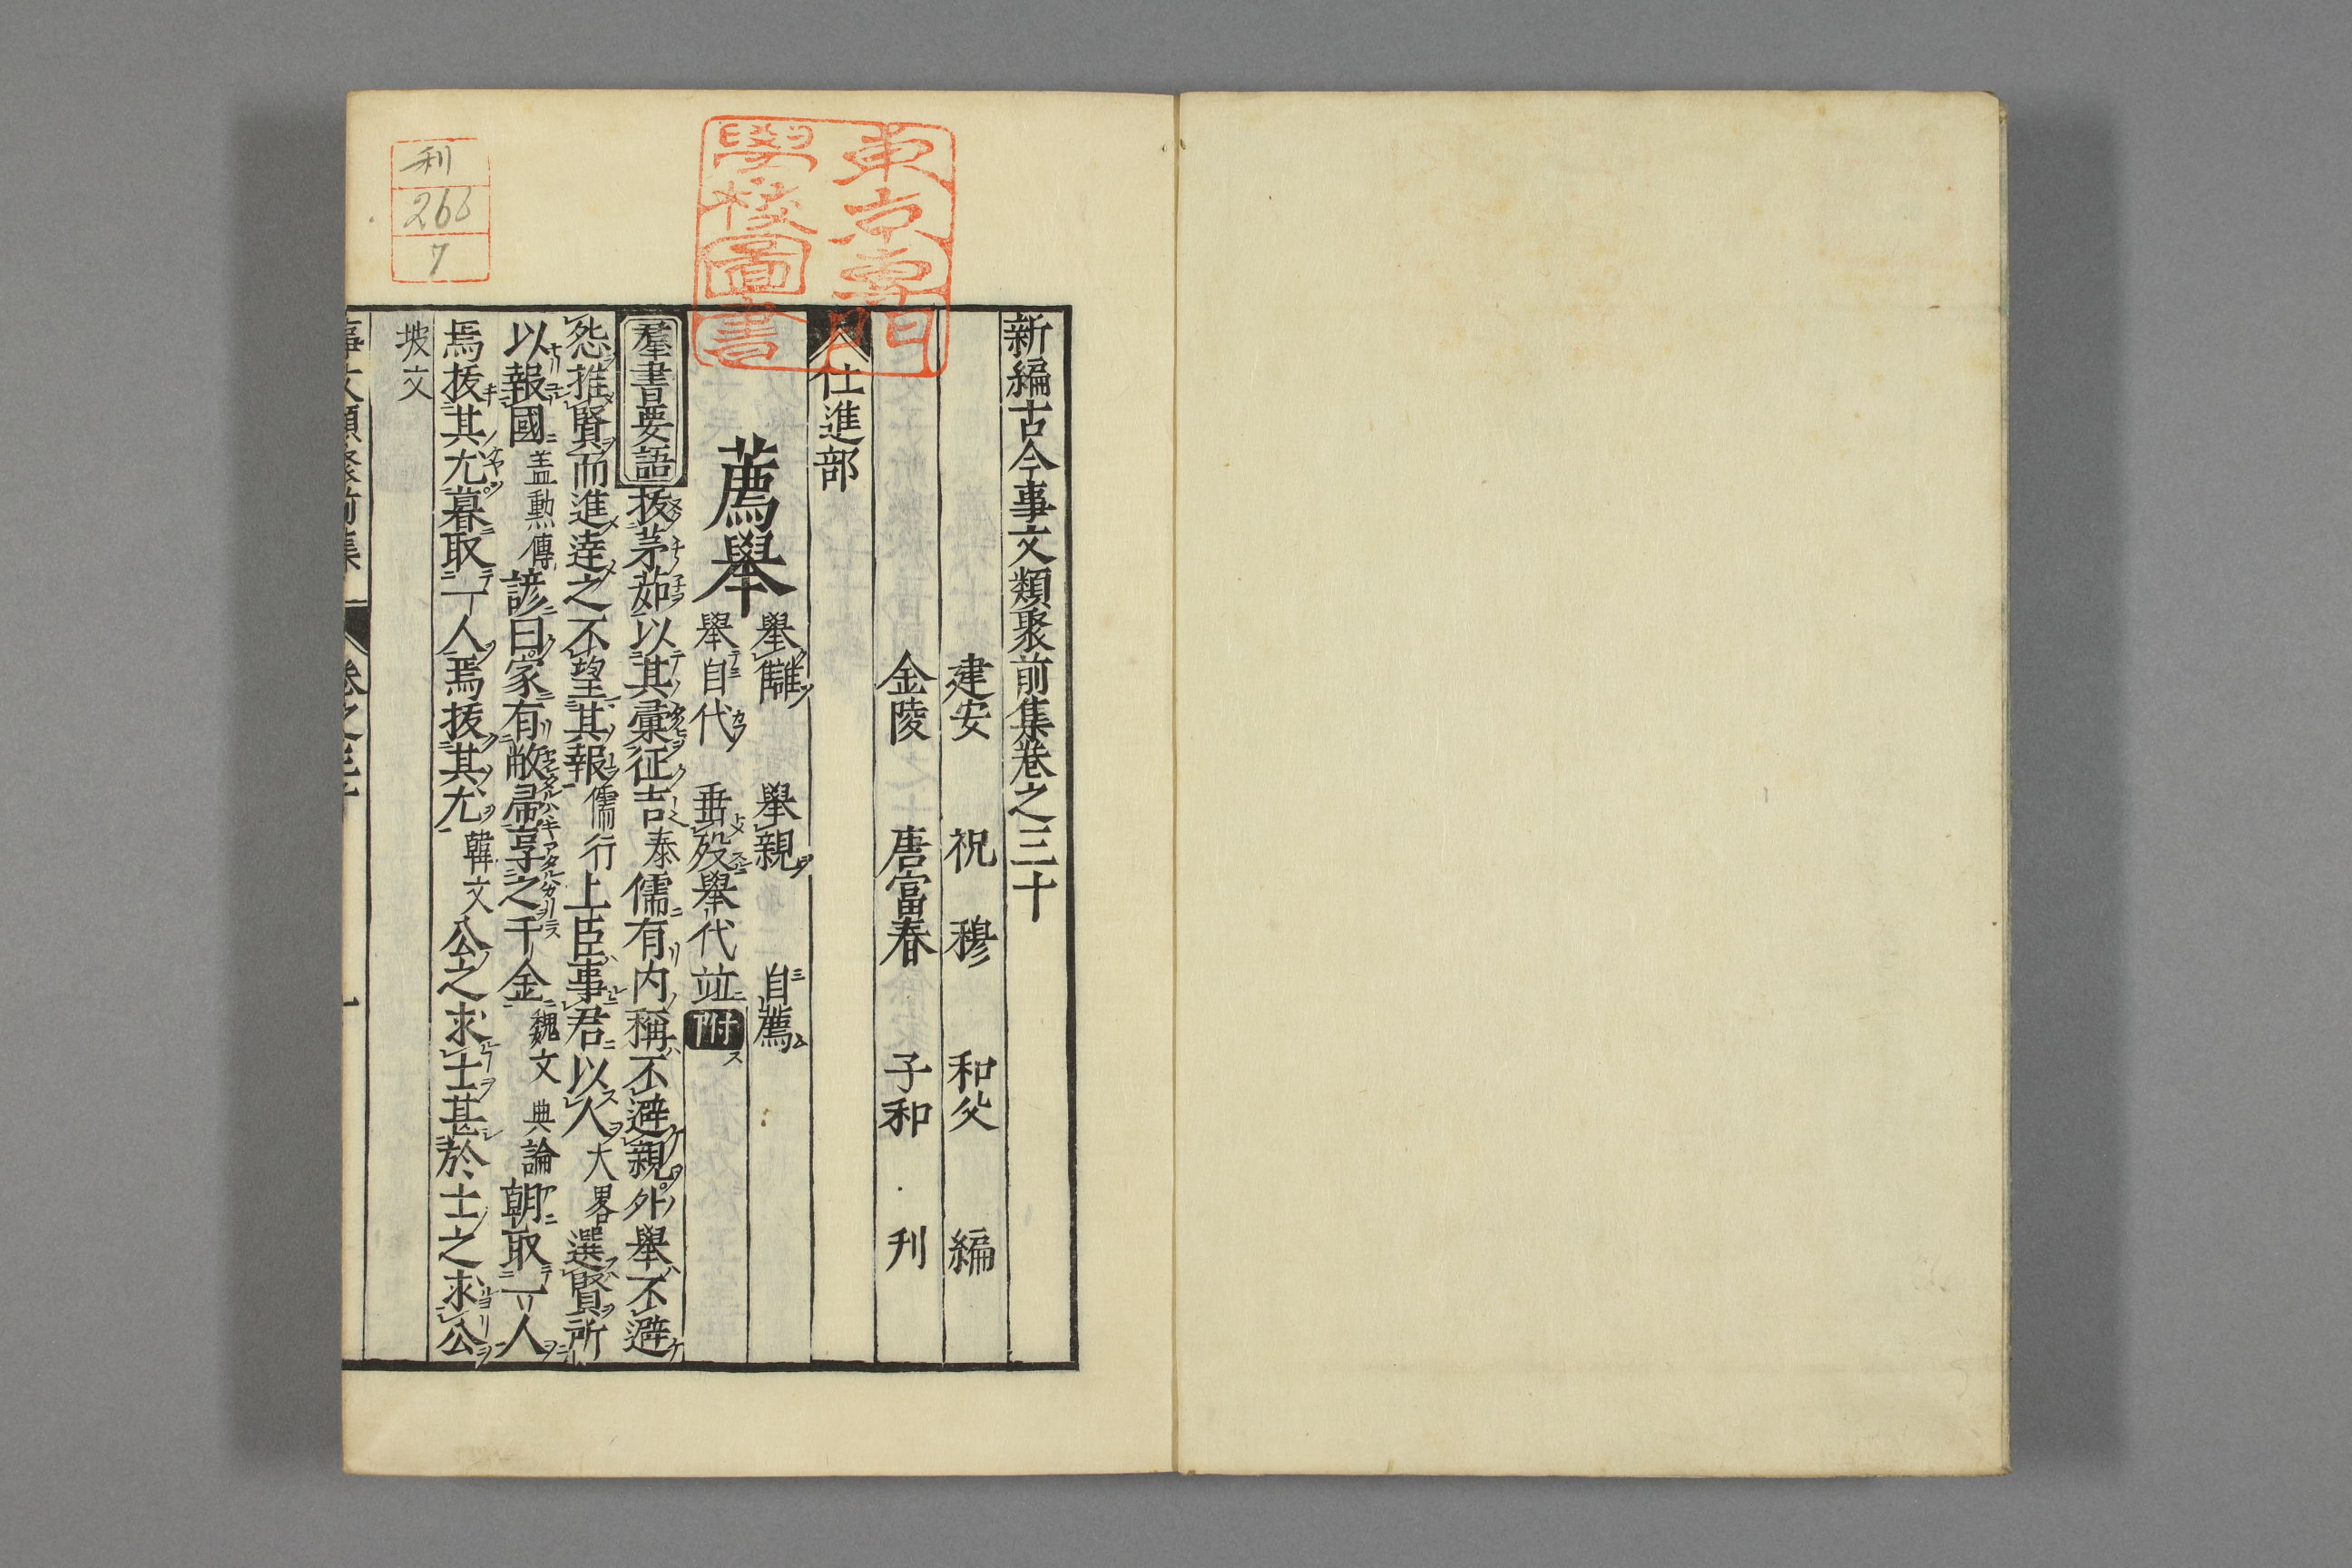 新編古今事文類聚前集卷之三十
建安 祝穆 和父 編
金陵 唐富春 子和 刊
仕進部
薦舉
舉讎 舉親 自薦
舉自代 垂歿舉代 竝附
羣書要語 拔茅茹以其彙征吉泰儒有内稱不避親外舉不避
怨推賢而進達之不望其報儒行上臣事君以人大畧選賢所
以報國盖勲傳諺曰家有敝帚享之千金魏文典論朝取一人
焉拔其尤暮取一人焉拔其尤韓文公之求士甚於士之求公
坡文
事文類聚前集 卷之三十 一
東京專門
學校圖書
利
266
7